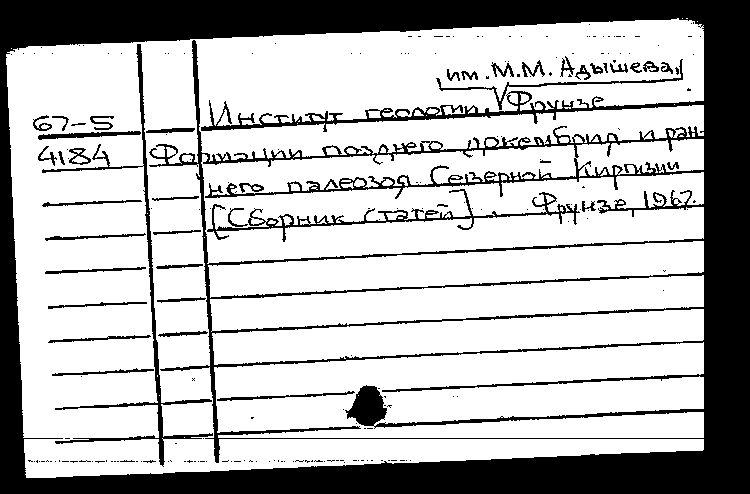 им. М.М. Адышева,
67-5 Институт геологии, Фрунзе
4184 Формации позднего докембрия и ран-
него палеозоя Северной Киргизии
[Сборник статей]. Фрунзе, 1967.